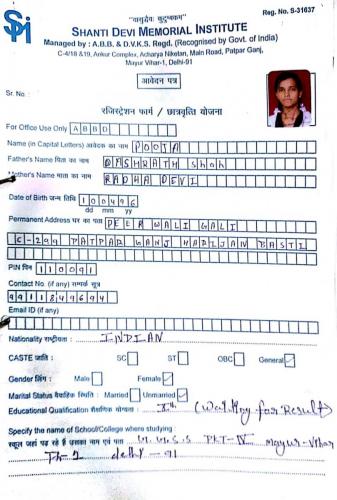 "वासुधैव कुटुम्बकम्"
Reg. No. S-31637
SPI
SHANTI DEVI MEMORIAL INSTITUTE
Managed by : A.B.B. & D.V.K.S. Regd. (Recognised by Govt. of India)
C-4/18 &19, Ankur Complex, Acharya Niketan, Main Road, Patpar Ganj,
Mayur Vihar-1, Delhi-91
आवेदन पत्र
Sr. No :
रजिस्ट्रेशन फार्म / छात्रवृत्ति योजना
For Office Use Only A B B D
Name (in Capital Letters) आवेदक का नाम POOJA
Father's Name पिता का नाम DASHRATH Shah
Mother's Name माता का नाम RADHA DEVI
Date of Birth जन्म तिथि 100496
dd mm yy
Permanent Address घर का पता PEER WALI GALI
6-299 PATPAR GANJ HARIJAN BASTI
PIN पिन 110091
Contact No. (if any) सम्पर्क सूत्र
9911849694
Email ID (if any)
Nationality राष्ट्रीयता : INDIAN
CASTE जाति : SC ST OBC General ✓
Gender लिंग : Male Female ✓
Marital Status वैवाहिक स्थिति : Married Unmarried ✓
Educational Qualification शैक्षणिक योग्यता : Xth (Waiting for Result)
Specify the name of School/College where studying
स्कूल जहां पढ़ रहे हैं उसका नाम एवं पता PKT-IV Mayur-Vihar
Ph-1 delhi-91